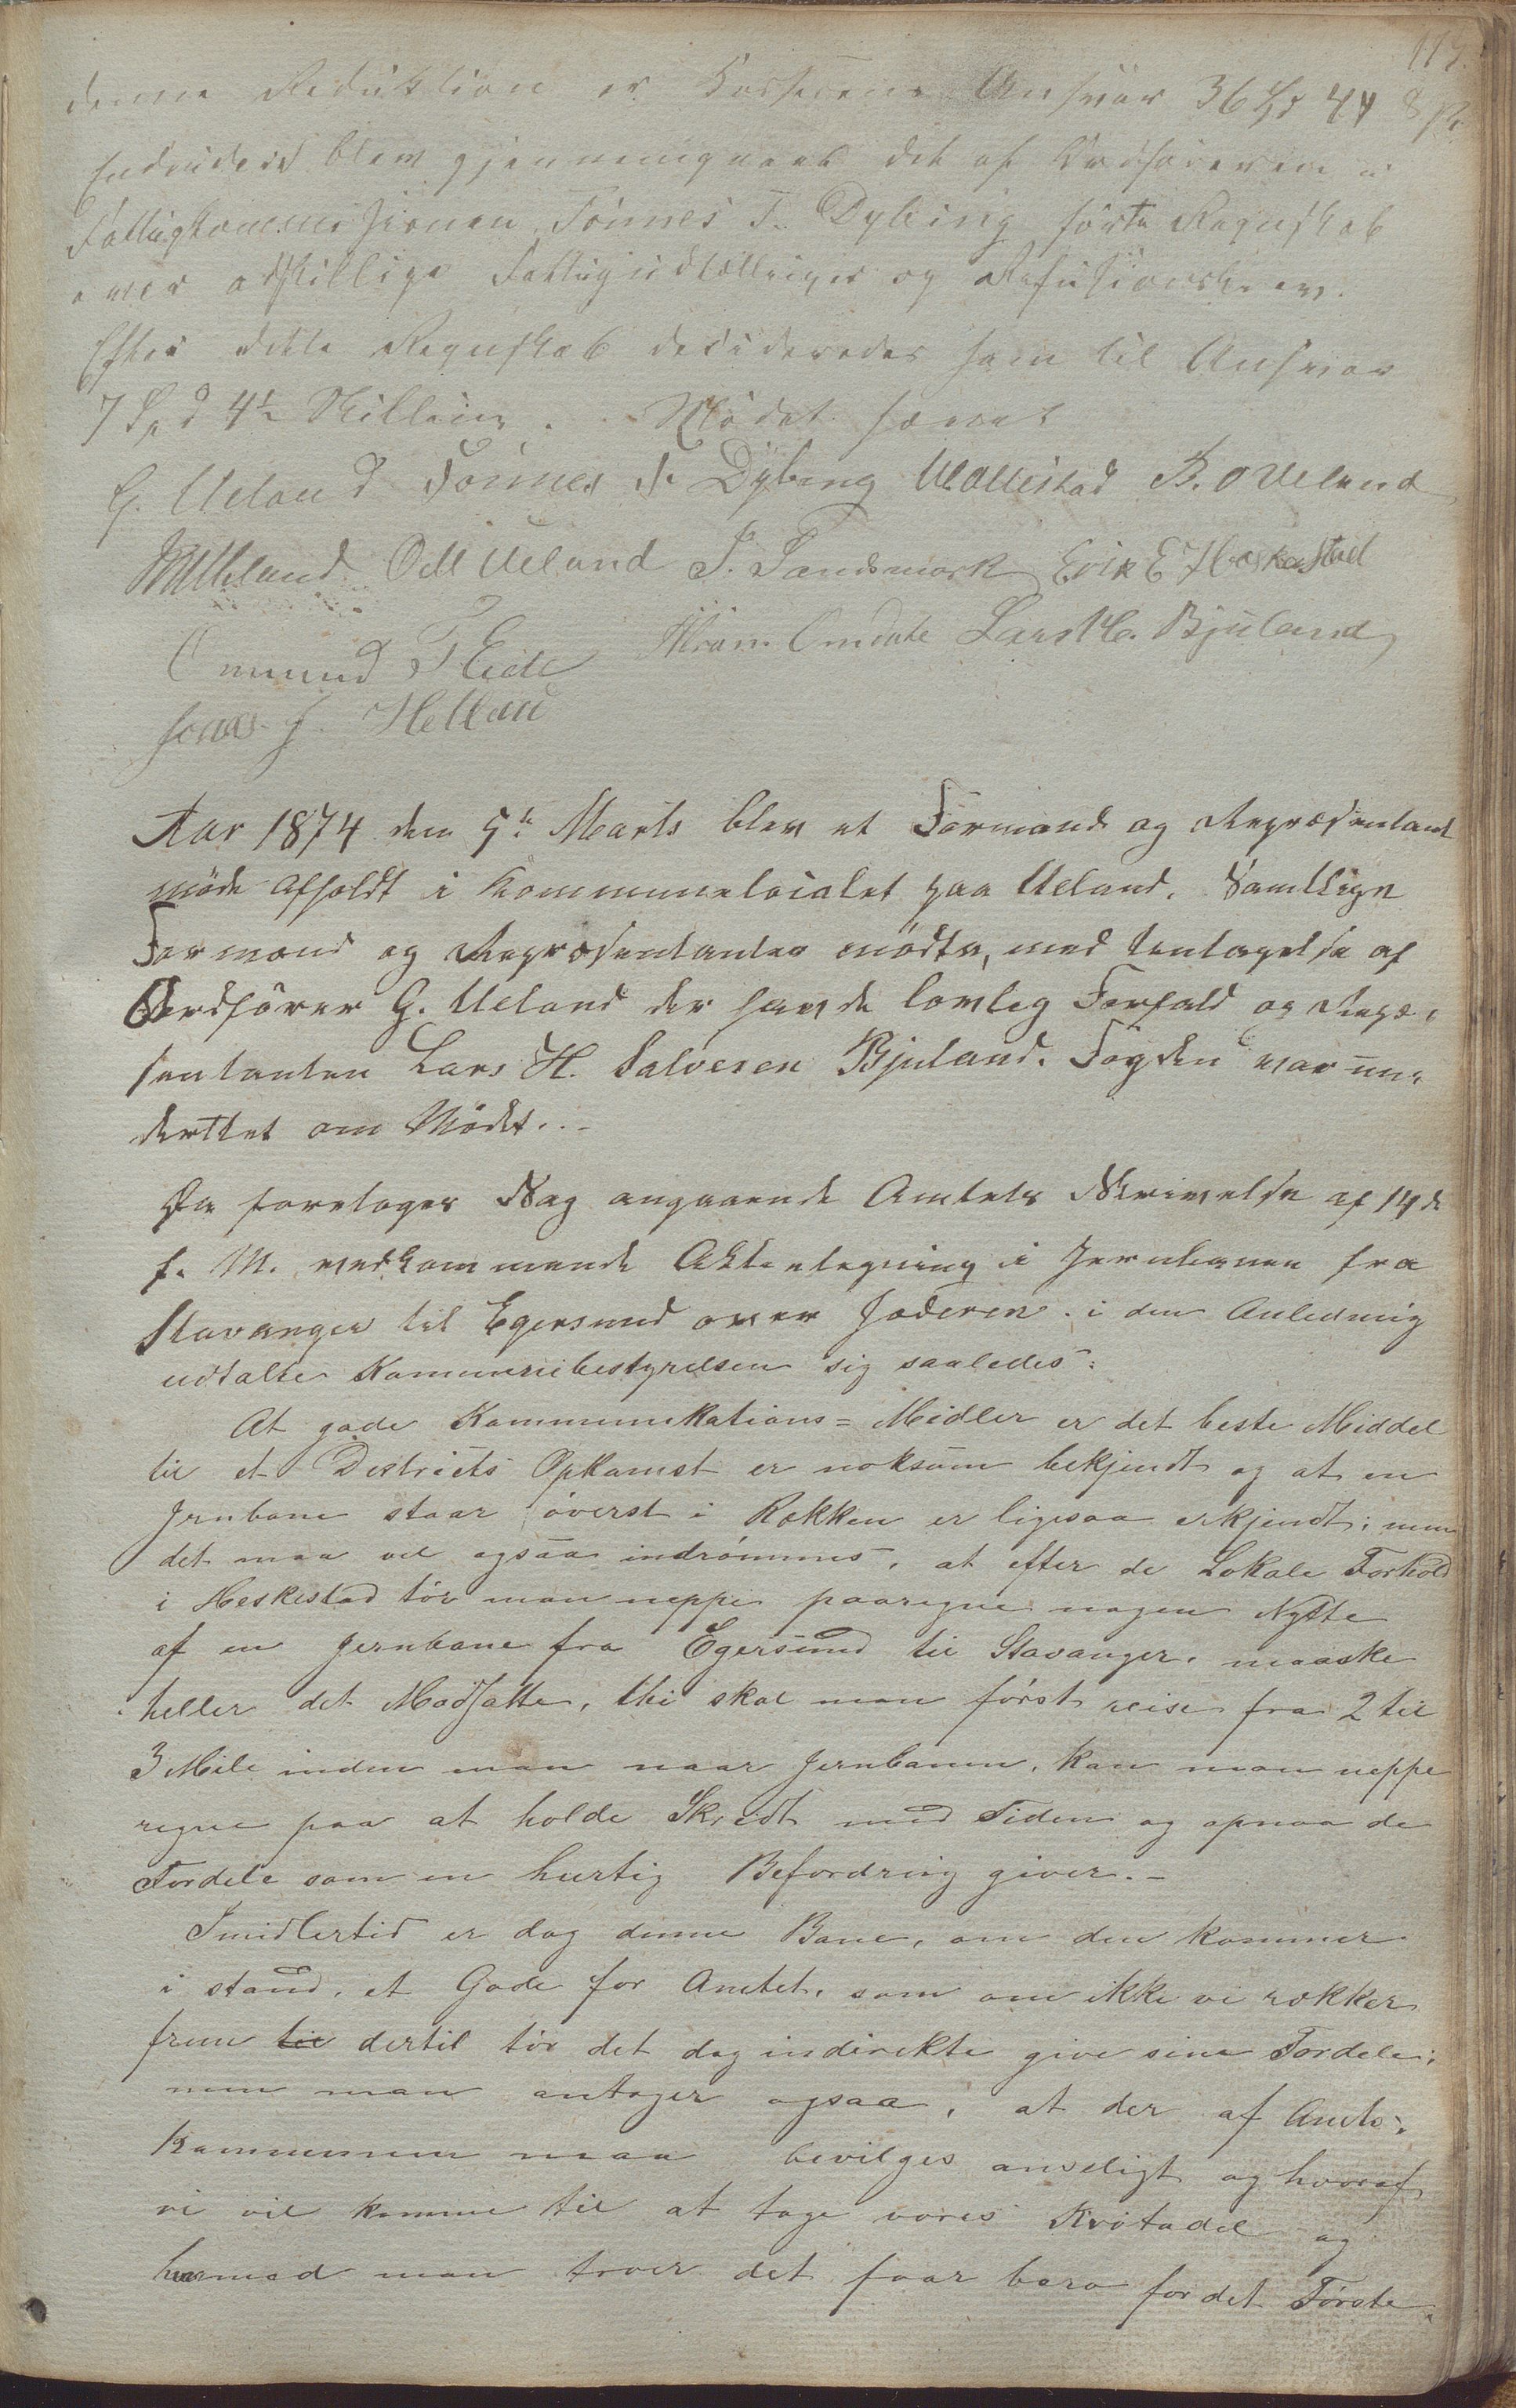 119.
denne Reduktion er Kassereren Ansvar 36 Spd 4 # 8 s.
Endvidere blev gjennemgaaet det af Ordføreren i
Fattigkommissionen Tönnes T. Dybing førte Regnskab
over adskillige Fattigudtællinger og Refusionskrav.
Efter dette Regnskab desideredes som til Ansvar
7 Spd 4½ Skilling. Mödet hævet
G. Ueland Tönnes T. Dybing B. O Ueland
Odl Ueland J. Tandsmark Erik E Heskestad
Omund T Eide Omdal Lars H. Bjuland
Jonas J. Helland
Aar 1874 den 5te Marts blev et Formand og Repræsentant
møde afholdt i Kommunelocalet paa Ueland. Samtlige
Formænd og Repræsentanter mødte, med Undtagelse af
Ordfører G. Ueland der havde lovlig Forfald og Repræ-
sentanten Lars H. Salvesen Bjuland. Fogden var un-
derettet om Mödet. -
Da foretoges Sag angaaende Amtets Skrivelse af 14 de
f. M. vedkommende Aktietegning i Jernbanen fra
Stavanger til Egersund over Jæderen. i den Anledning
udtalte Kommunebestyrelsen sig saaledes:
At gode Kommunikations= Midler er det beste Middel
til et Districts Opkomst er noksom bekjendt og at en
Jrnbane staar øverst i Rækken er ligesaa erkjendt; men
det maa vel ogsaa indrömmes, at efter de Lokale Forhold
i Heskestad tör man neppe paaregne nogen Nytte
af en Jernbane fra Egersund til Stavanger, maaske
heller det Modsatte, thi skal man først reise fra 2 til
3 Mile inden man naar Jernbanen, kan man neppe
regne paa at holde Skridt med Tiden og opnaa de
Fordele som en hurtig Befordring giver. -
Imidlertid er dog denne Bane, om den kommer
i stand, et Gode for Amtet, som om ikke vi rækker
frem til dertil tör det dog indirekte give sine Fordele;
men man antager ogsaa, at der af Amts-
Kommunen maa bevilges anseligt og hvoraf
vi vil komme til at tage vores Kvotadel og
hermed man troer det faar bero for det Første.